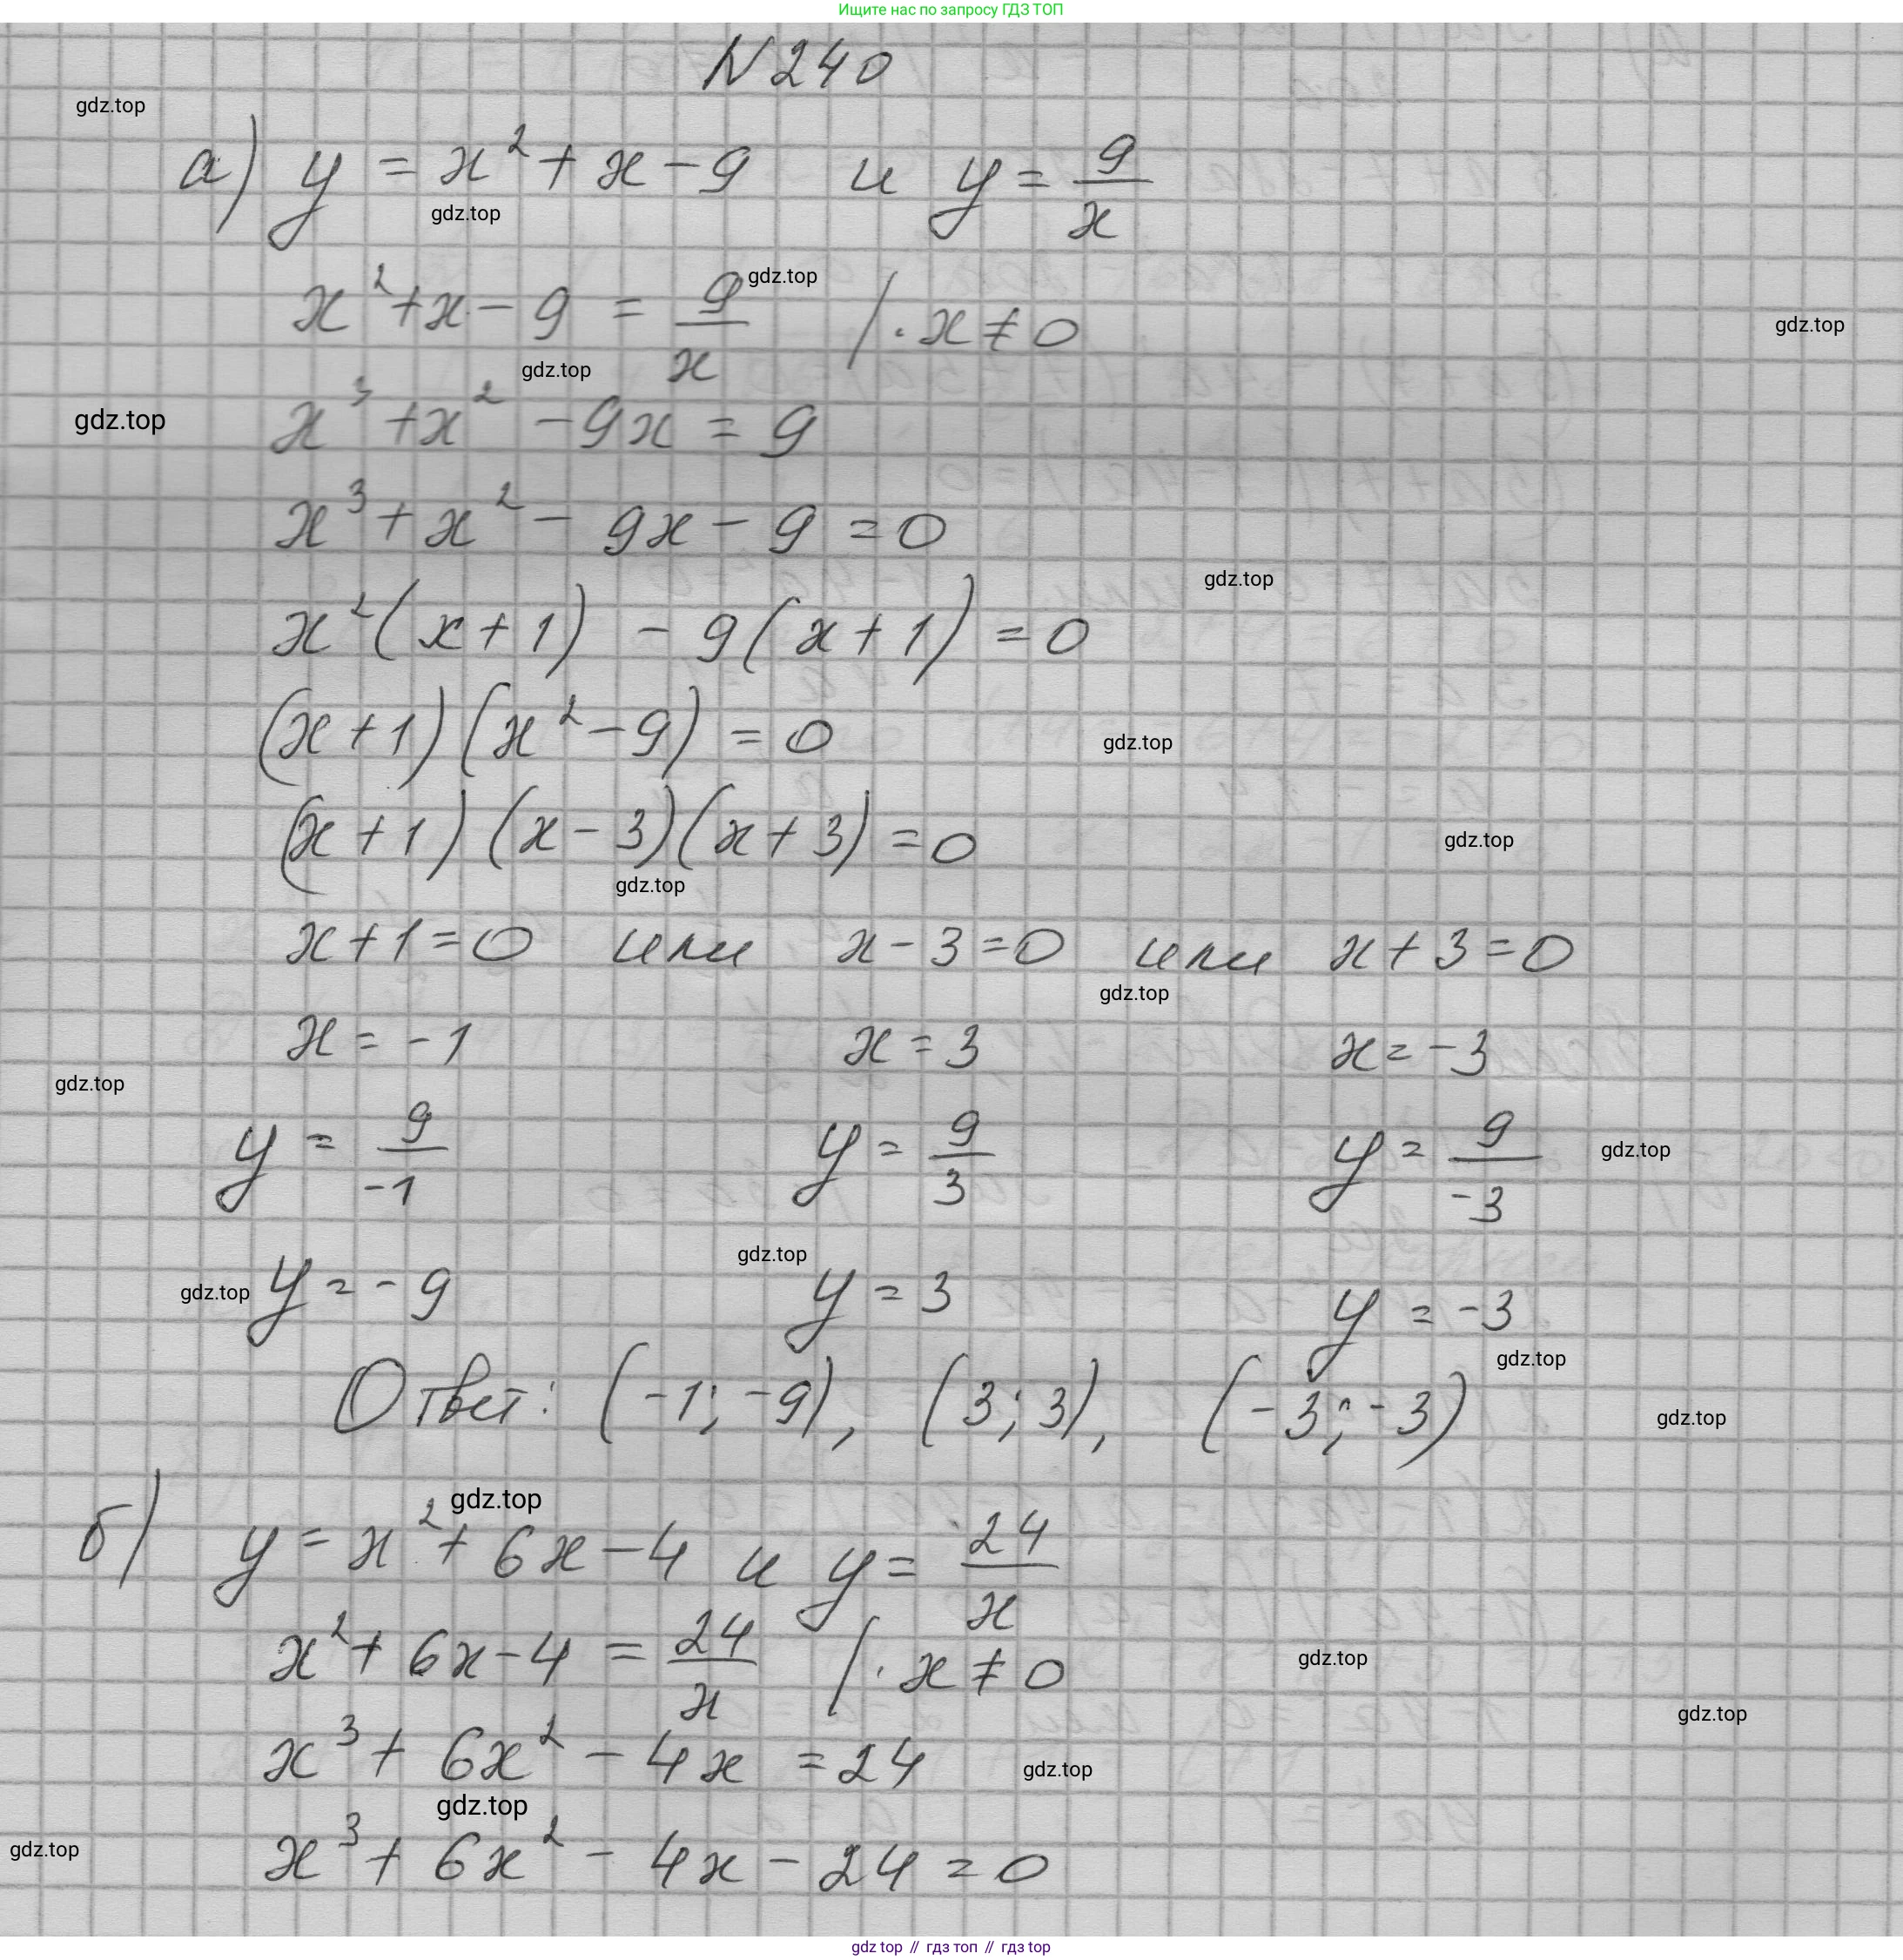 Ищите нас по запросу ГДЗ ТОП
N 240
gdz.top
а) y = x² + x - 9 и y = 9/x
gdz.top
x² + x - 9 = 9/x /· x ≠ 0
gdz.top
gdz.top
gdz.top
x³ + x² - 9x = 9
gdz.top
x³ + x² - 9x - 9 = 0
gdz.top
x²(x + 1) - 9(x + 1) = 0
(x + 1)(x² - 9) = 0
gdz.top
(x + 1)(x - 3)(x + 3) = 0
gdz.top
gdz.top
x + 1 = 0 или x - 3 = 0 или x + 3 = 0
gdz.top
x = -1 x = 3 x = -3
gdz.top
y = 9/-1 y = 9/3 y = 9/-3
gdz.top
gdz.top
gdz.top
y = -9 y = 3 y = -3
gdz.top
Ответ: (-1; -9), (3; 3), (-3; -3)
gdz.top
gdz.top
б) y = x² + 6x - 4 и y = 24/x
x² + 6x - 4 = 24/x /· x ≠ 0
gdz.top
gdz.top
x³ + 6x² - 4x = 24
gdz.top
gdz.top
x³ + 6x² - 4x - 24 = 0
gdz.top
gdz top // гдз топ // гдз top